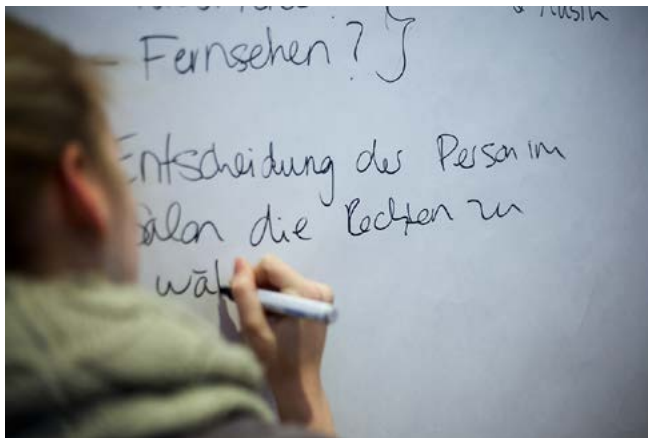 - Fernsehen? }
Entscheidung der Person im
Salon die Rechten zu
wäh